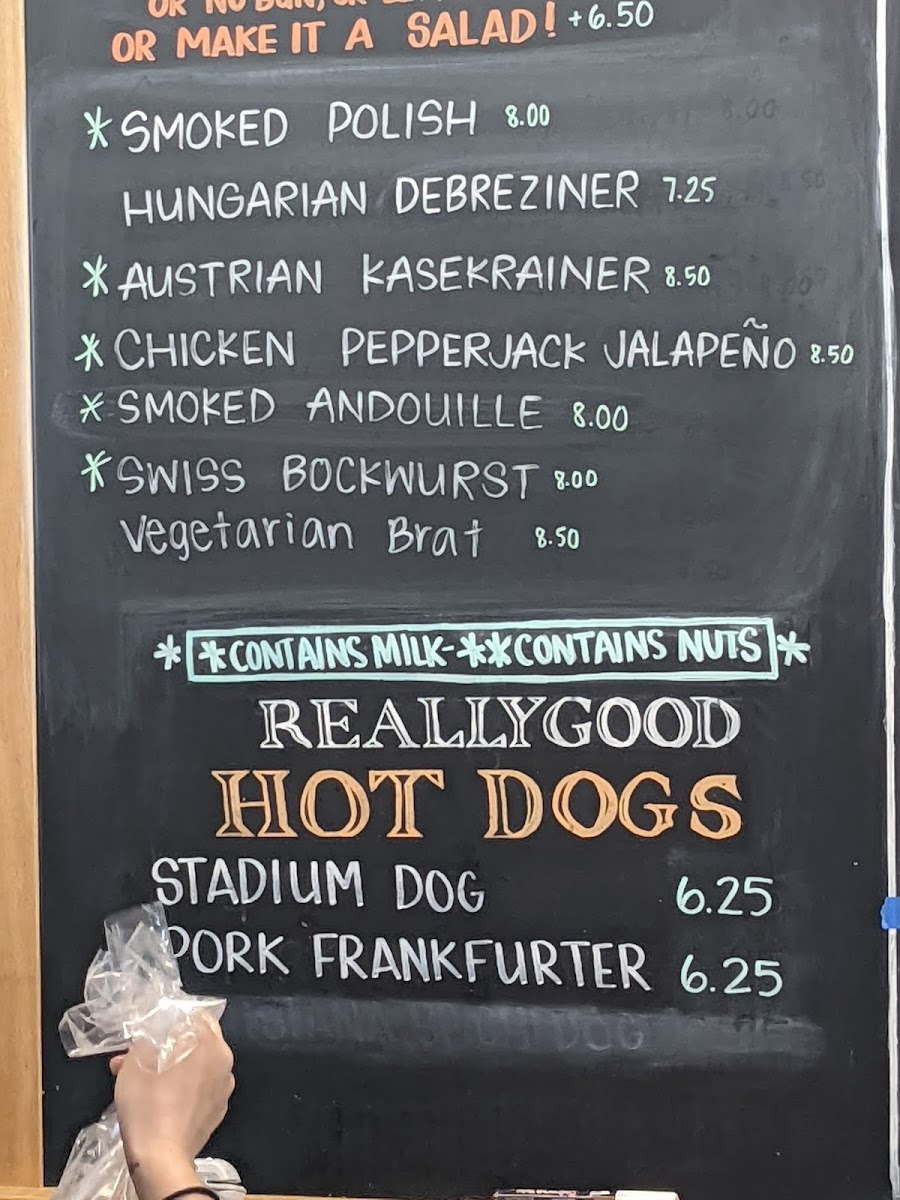 OR NO BUN, OR
OR MAKE IT A SALAD! +6.50
* SMOKED POLISH 8.00
HUNGARIAN DEBREZINER 7.25
* AUSTRIAN KASEKRAINER 8.50
* CHICKEN PEPPERJACK JALAPEÑO 8.50
* SMOKED ANDOUILLE 8.00
* SWISS BOCKWURST 8.00
Vegetarian Brat 8.50
* *CONTAINS MILK-**CONTAINS NUTS *
REALLYGOOD
HOT DOGS
STADIUM DOG 6.25
PORK FRANKFURTER 6.25